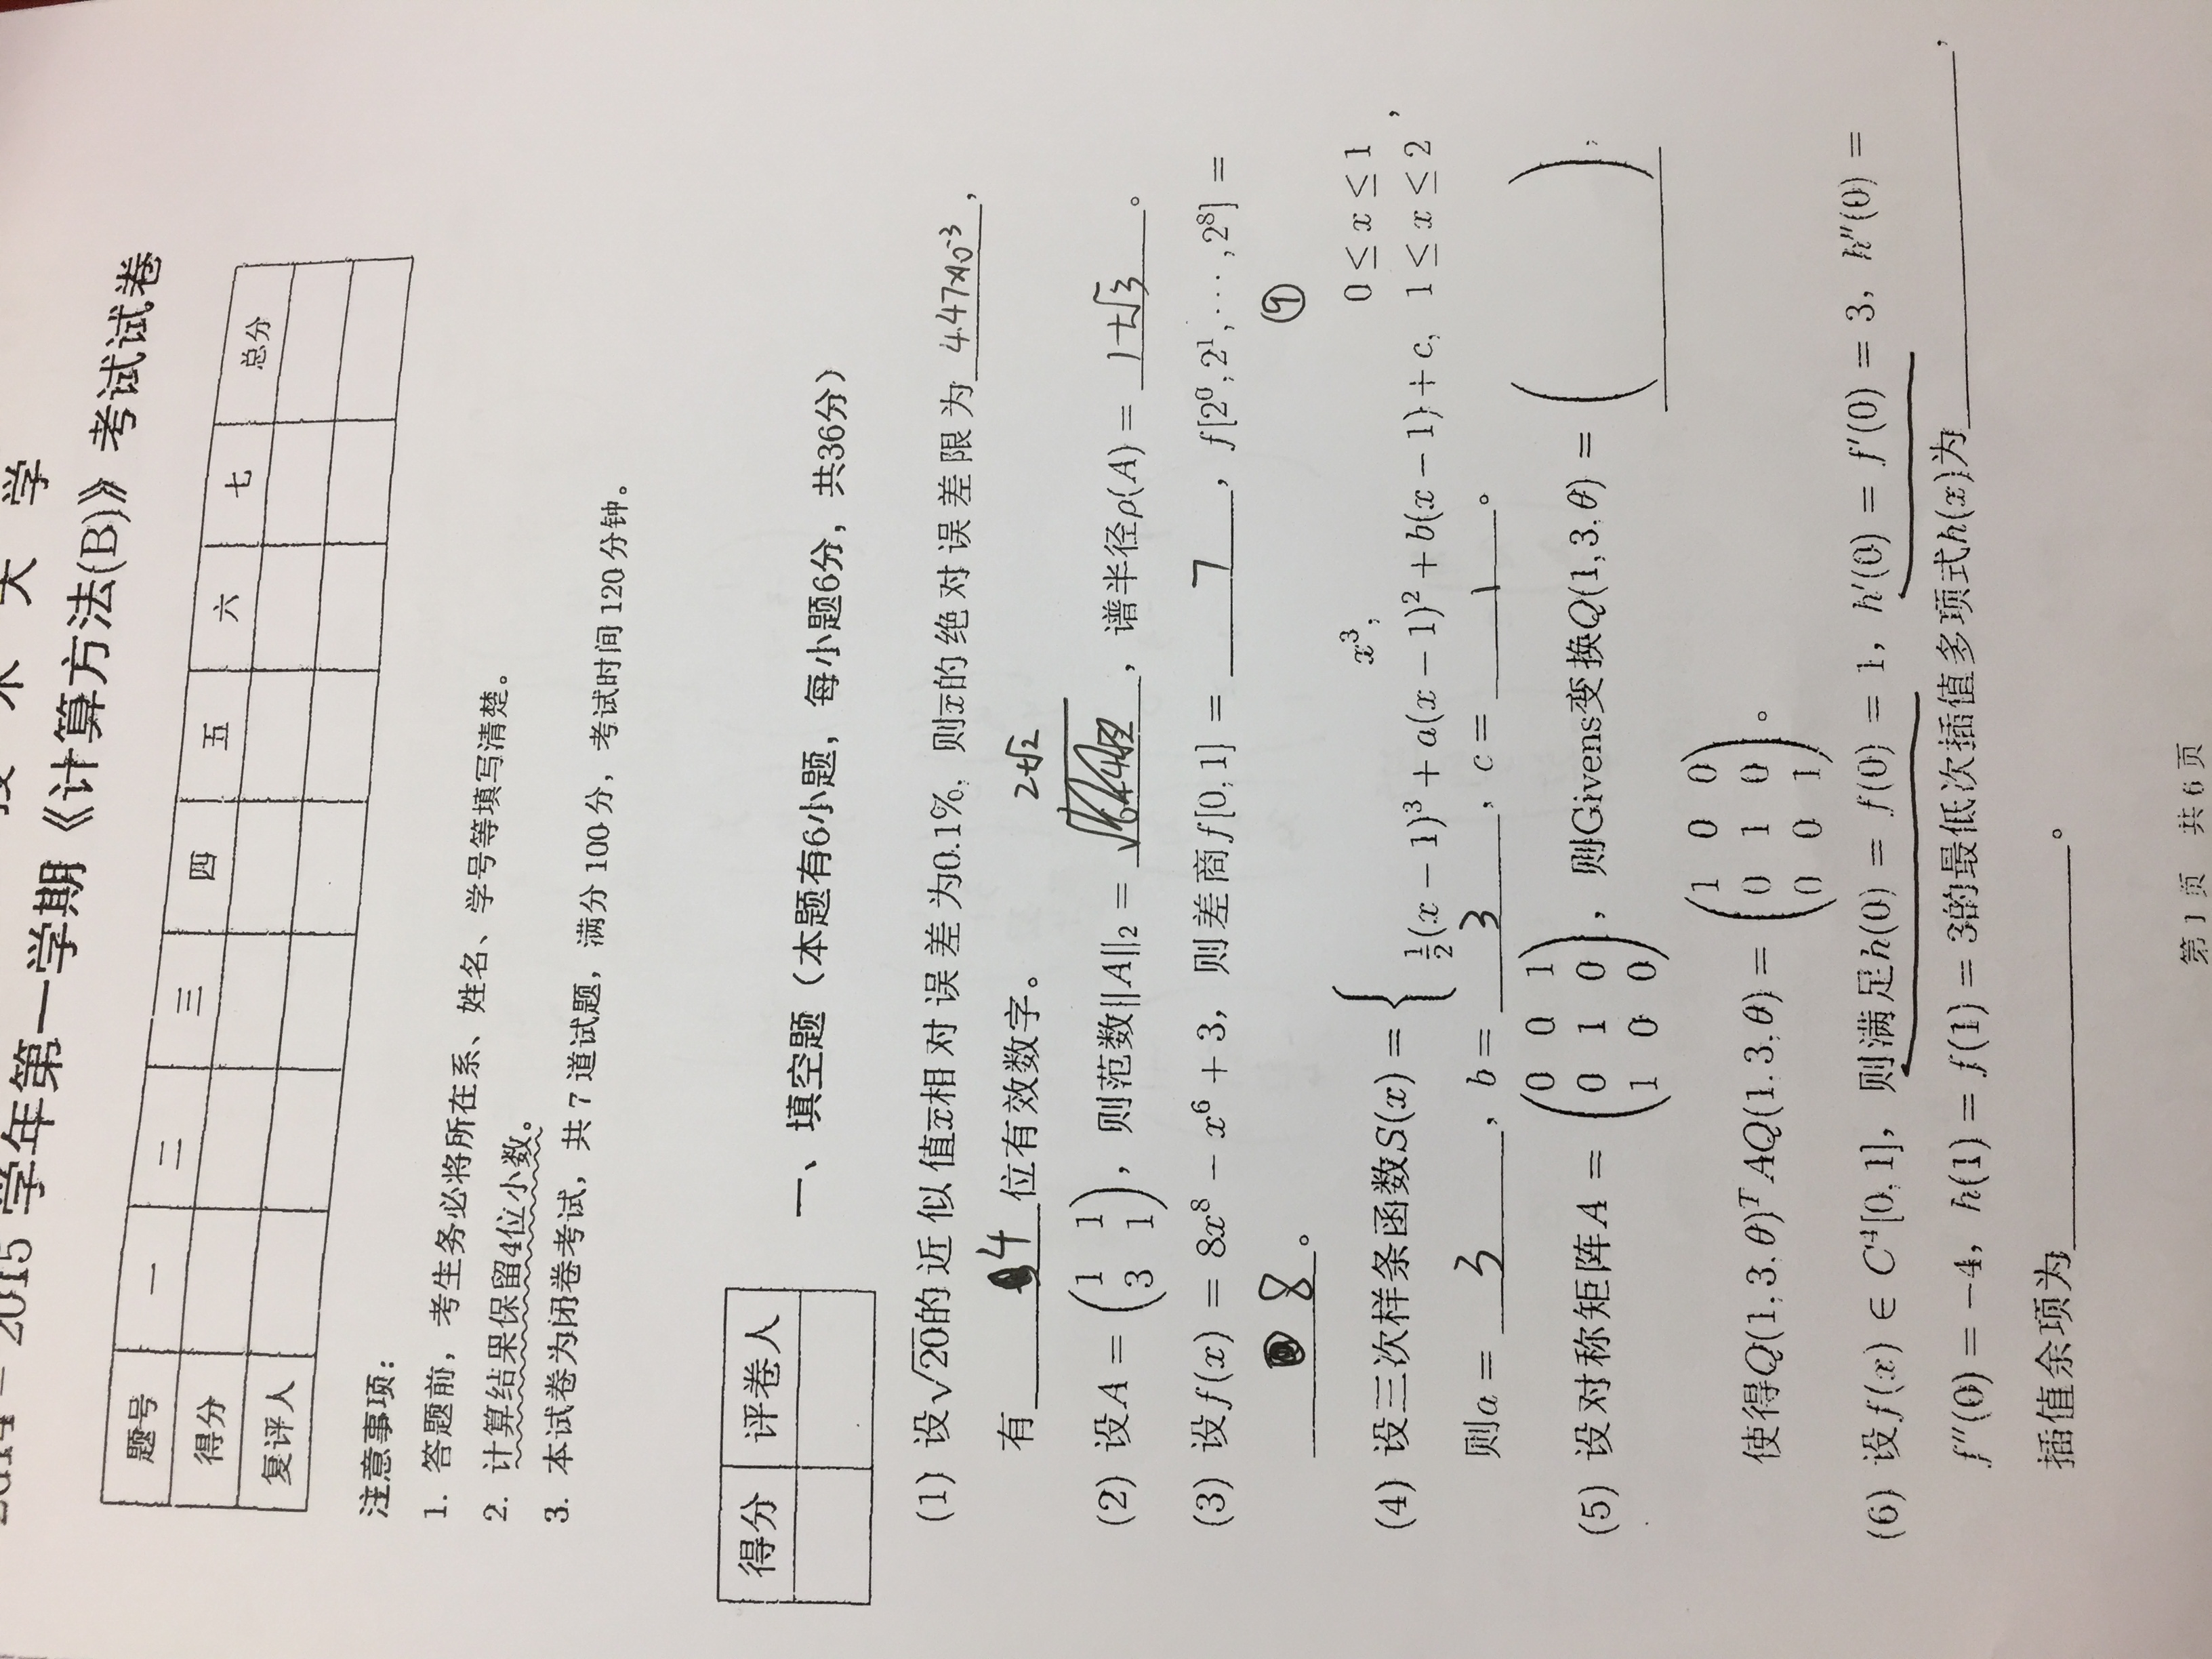 2014 - 2015 学年第一学期《计算方法(B)》考试试卷
题号 一 二 三 四 五 六 七 总分
得分
复评人
注意事项:
1. 答题前，考生务必将所在系、姓名、学号等填写清楚。
2. 计算结果保留4位小数。
3. 本试卷为闭卷考试，共 7 道试题，满分 100 分，考试时间 120 分钟。
得分 评卷人
一、填空题（本题有6小题，每小题6分，共36分）
(1) 设√20的近似值x̅相对误差为0.1%, 则x̅的绝对误差限为 4.47×10⁻³,
有 4 位有效数字。
2+√2
(2) 设A = (1 1; 3 1)，则范数‖A‖₂ = ，谱半径ρ(A) = 1+√3。
(3) 设f(x) = 8x⁸ − x⁶ + 3，则差商f[0, 1] = 7，f[2⁰, 2¹, ⋯ , 2⁸] =
8。
⑨
(4) 设三次样条函数S(x) = { x³, 0 ≤ x ≤ 1
½(x − 1)³ + a(x − 1)² + b(x − 1) + c, 1 ≤ x ≤ 2 ,
则a = 3，b = 3，c = 1。
(5) 设对称矩阵A = (0 0 1; 0 1 0; 1 0 0)，则Givens变换Q(1, 3, θ) = ( ),
使得Q(1, 3, θ)ᵀAQ(1, 3, θ) = (1 0 0; 0 1 0; 0 0 1)。
(6) 设f(x) ∈ C⁴[0, 1]，则满足h(0) = f(0) = 1，h′(0) = f′(0) = 3，h″(0) =
f″(0) = −4，h(1) = f(1) = 3的最低次插值多项式h(x)为 ,
插值余项为 。
第 1 页 共 6 页